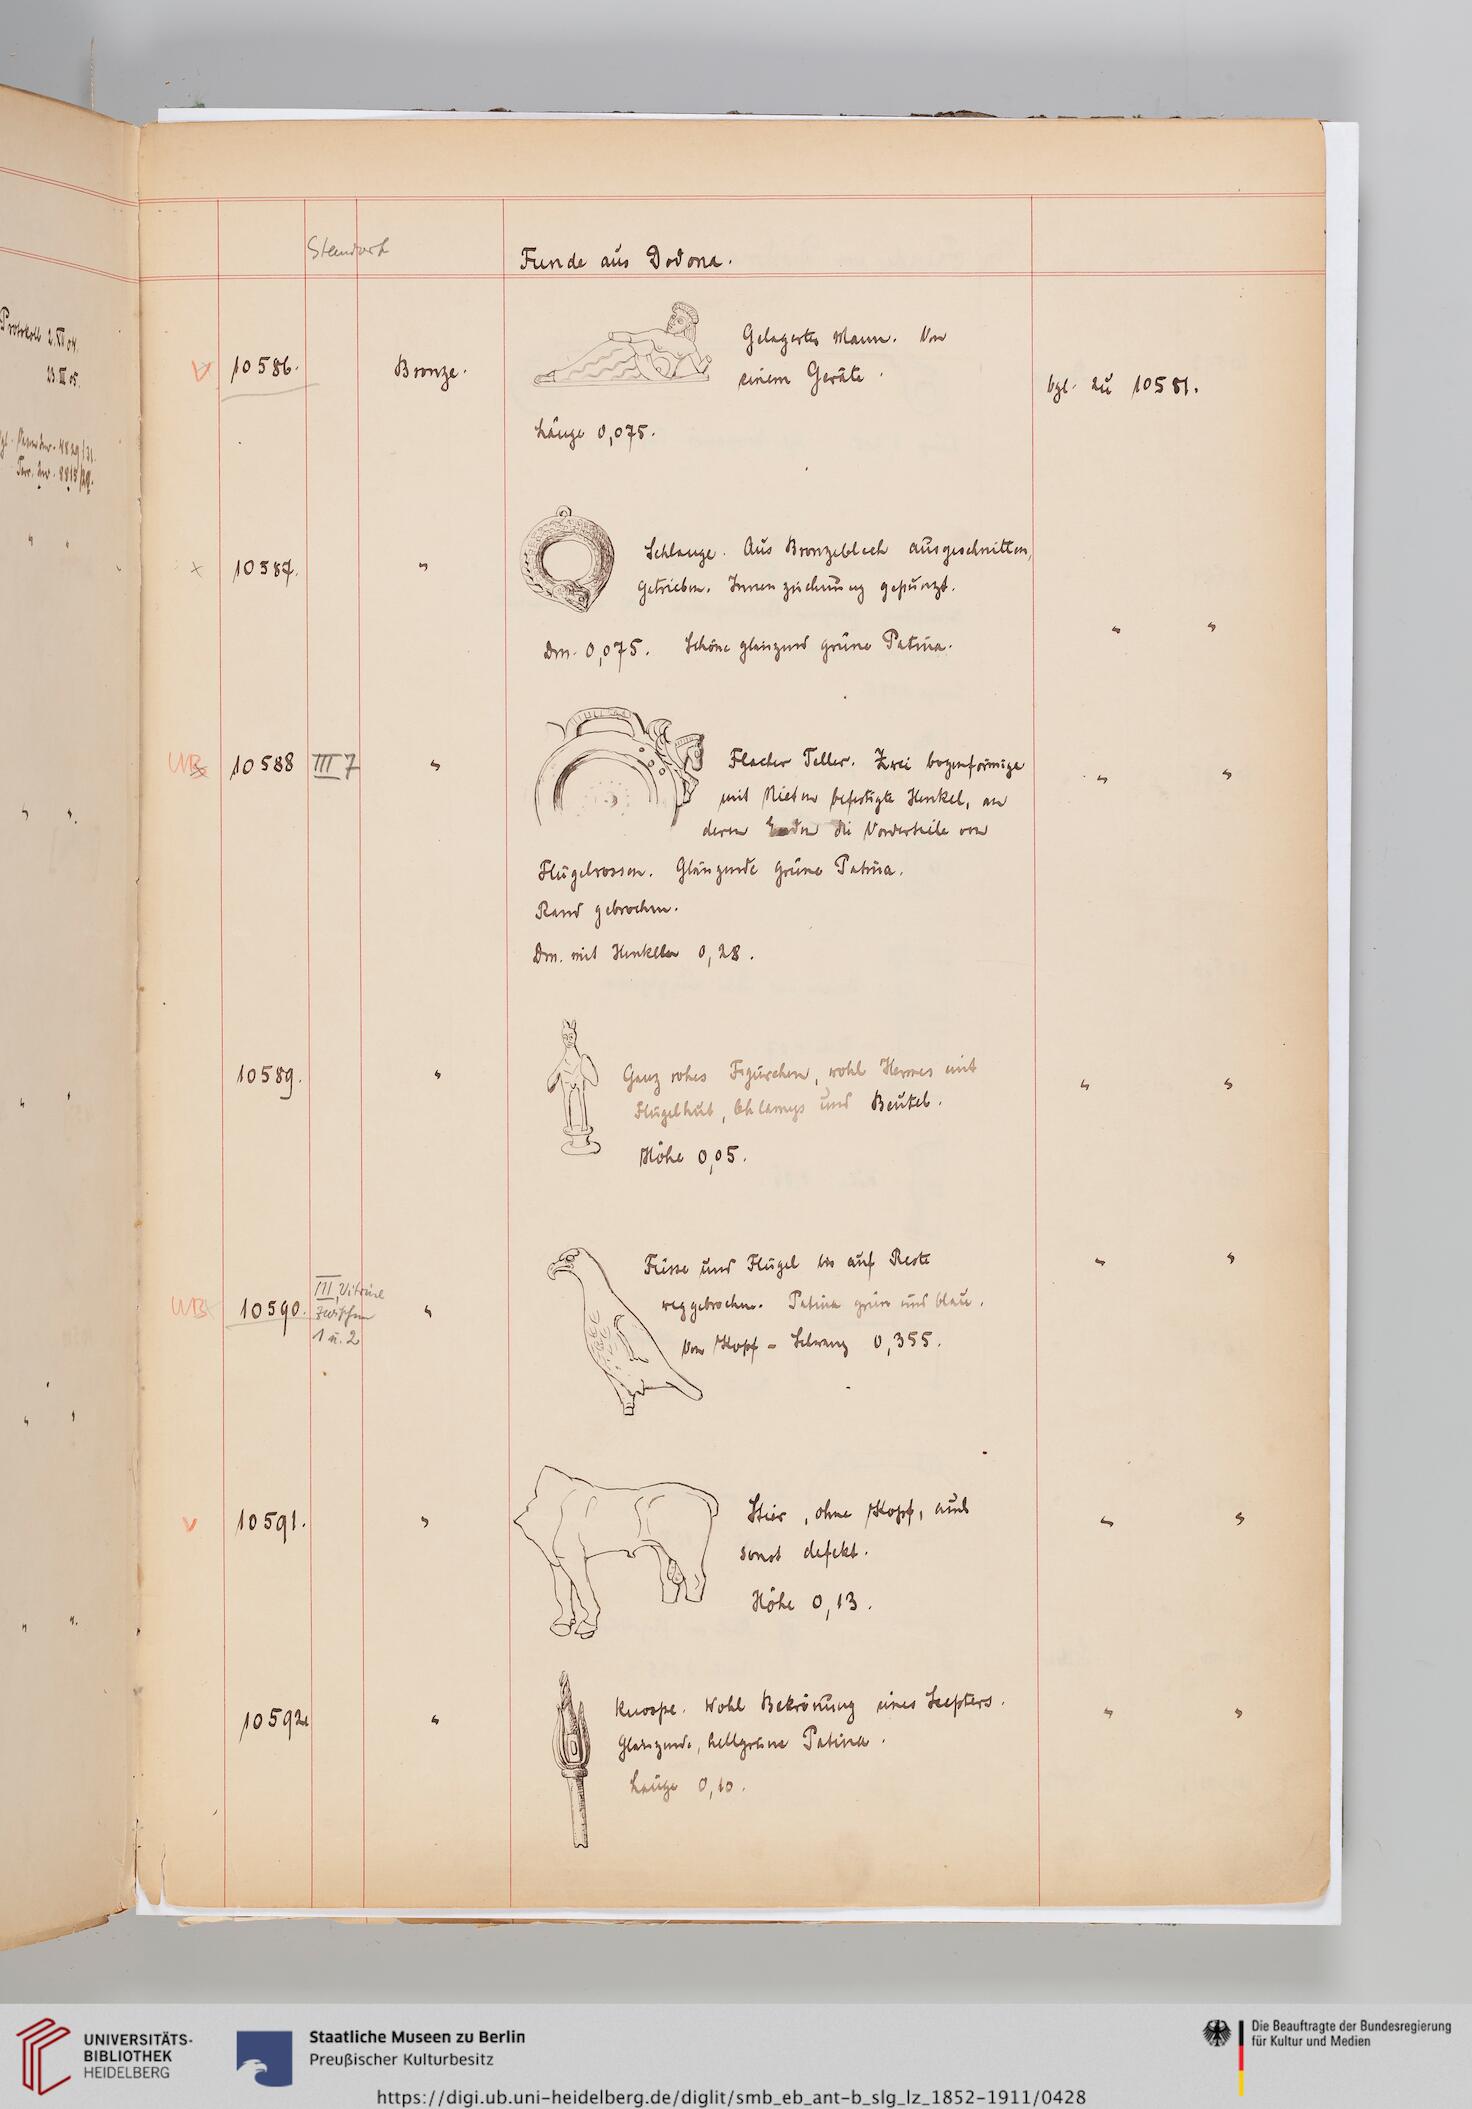 Standort
Funde aus Dodona.
Protokoll 2.XII 04.
23.III 05.
V 10586. Bronze. Gelagerter Mann. Von
einem Geräte. bgl. zu 10581.
Länge 0,075.
x 10587. " Schlange. Aus Bronzeblech ausgeschnitten,
getrieben. Innenzeichnung gepunzt.
" "
Dm. 0,075. Schöne glänzend grüne Patina.
UB 10588 III 7 " Flacher Teller. Zwei bogenförmige " "
mit Nieten befestigte Henkel, an
deren Enden die Vorderteile von
Flügelrossen. Glänzende grüne Patina.
Rand gebrochen.
Dm. mit Henkeln 0,28.
10589. " Ganz rohes Figürchen, wohl Hermes mit " "
Flügelhut, Chlamys und Beutel.
Höhe 0,05.
Füsse und Flügel bis auf Reste " "
UB 10590. III, Vitrine
zwischen
1 u. 2
" weggebrochen. Patina grün und blau.
Von Kopf - Schwanz 0,355.
V 10591. " Stier, ohne Kopf, auch " "
sonst defekt.
Höhe 0,13.
10592 " Knospe. Wohl Bekrönung eines Scepters. " "
Glänzende, hellgrüne Patina.
Länge 0,10.
UNIVERSITÄTS-
BIBLIOTHEK
HEIDELBERG
Staatliche Museen zu Berlin
Preußischer Kulturbesitz
Die Beauftragte der Bundesregierung
für Kultur und Medien
https://digi.ub.uni-heidelberg.de/diglit/smb_eb_ant-b_slg_lz_1852-1911/0428